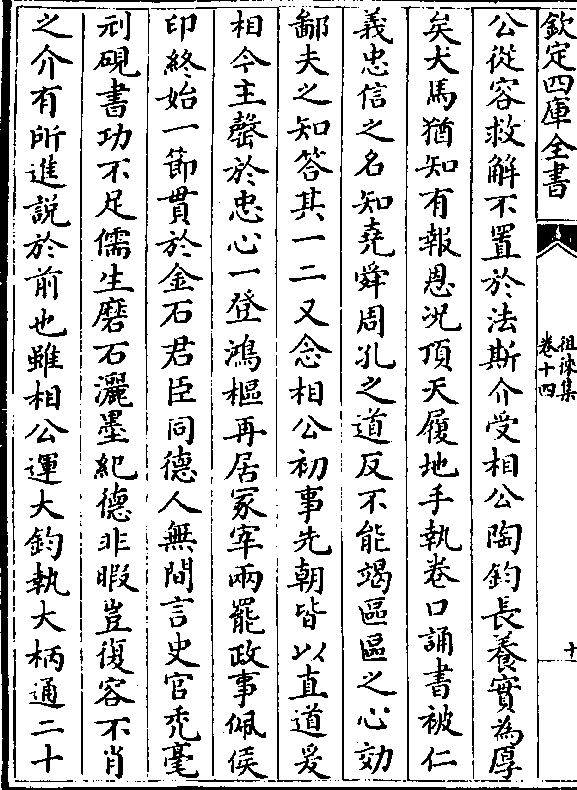 欽定四庫全書
徂徠集
卷十四
十
公從容救解不置於法斯介受相公陶鈞長養實為厚
矣犬馬猶知有報恩况頂天履地手執卷口誦書被仁
義忠信之名知堯舜周孔之道反不能竭區區之心効
鄙夫之知答其一二又念相公初事先朝皆以直道爰
相今主罄於忠心一登鴻樞再居冢宰兩罷政事佩侯
印終始一節貫於金石君臣同德人無間言史官秃毫
刓硯書功不足儒生磨石灑墨紀德非暇豈復容不肖
之介有所進説於前也雖相公運大鈞執大柄通二十